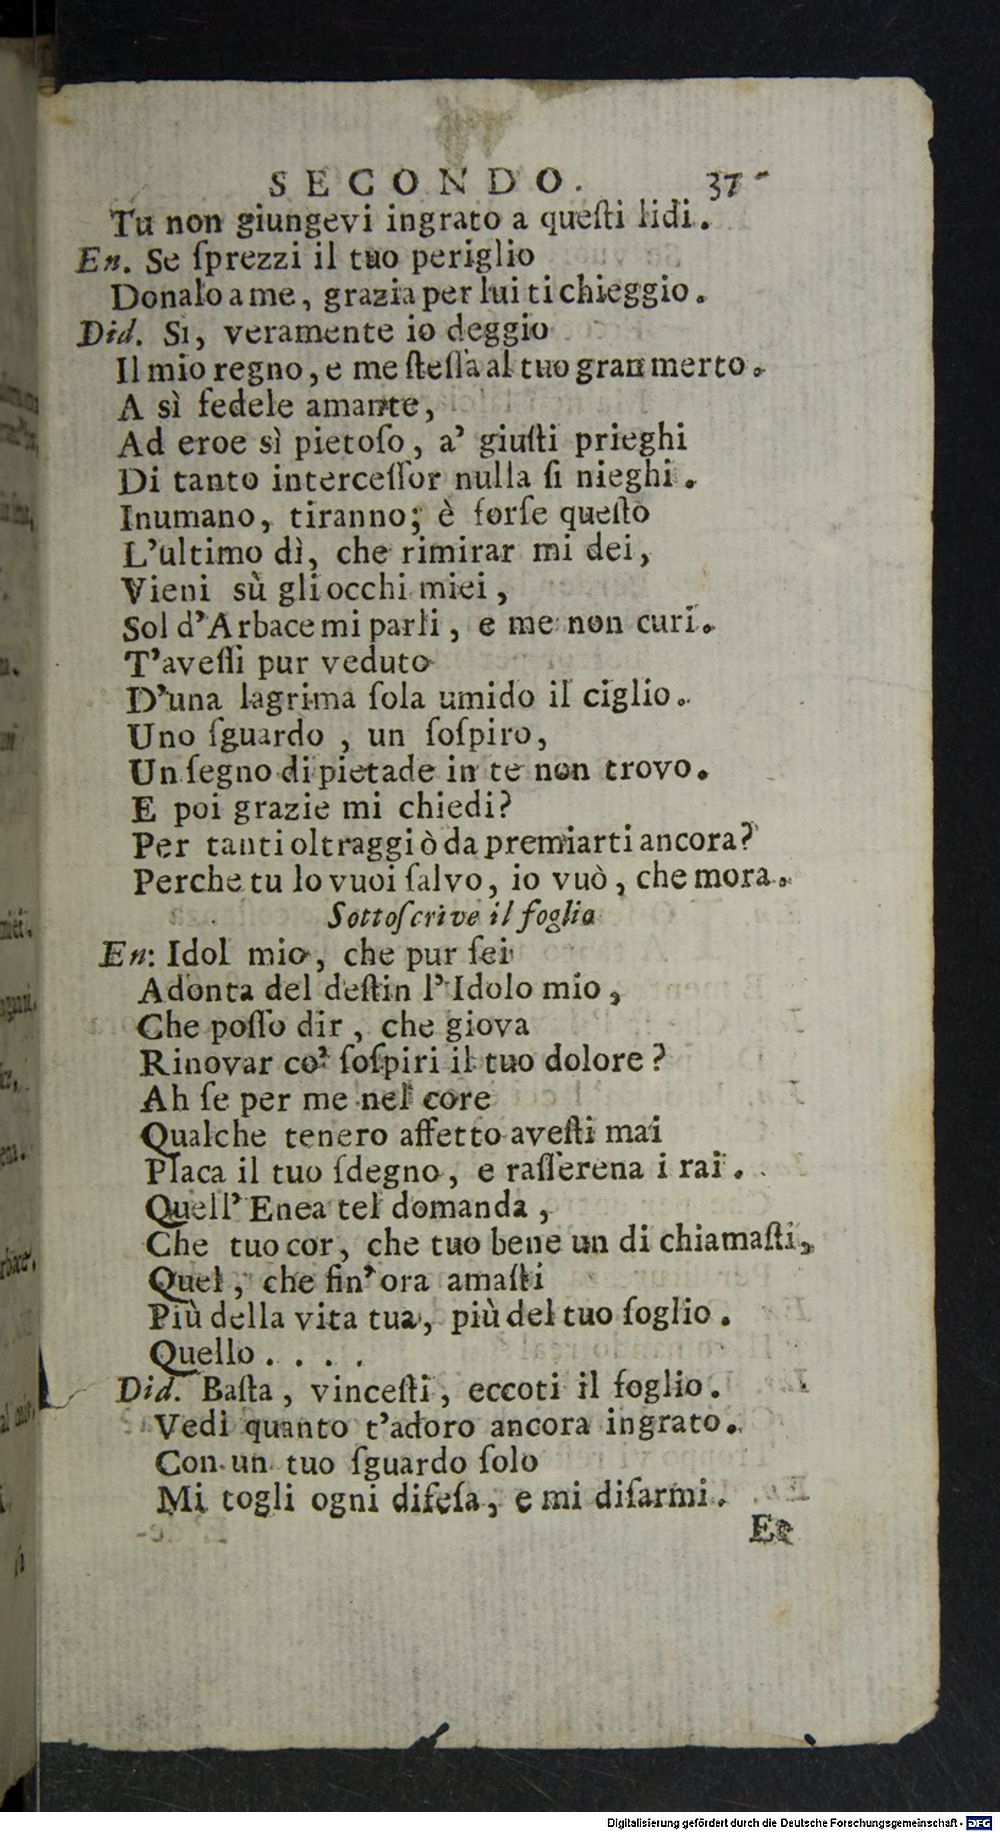 SECONDO. 37
Tu non giungevi ingrato a queſti lidi.
En. Se ſprezzi il tuo periglio
Donalo a me, grazia per lui ti chieggio.
Did. Si, veramente io deggio
Il mio regno, e me ſteſſa al tuo gran merto.
A sì fedele amante,
Ad eroe sì pietoſo, a' giuſti prieghi
Di tanto interceſſor nulla ſi nieghi.
Inumano, tiranno; è forſe queſto
L'ultimo dì, che rimirar mi dei,
Vieni sù gli occhi miei,
Sol d'Arbace mi parli, e me non curi.
T'aveſſi pur veduto
D'una lagrima ſola umido il ciglio.
Uno ſguardo, un ſoſpiro,
Un ſegno di pietade in te non trovo.
E poi grazie mi chiedi?
Per tanti oltraggi ò da premiarti ancora?
Perche tu lo vuoi ſalvo, io vuò, che mora.
Sottoſcrive il foglio
En: Idol mio, che pur ſei
Adonta del deſtin l'Idolo mio,
Che poſſo dir, che giova
Rinovar co' ſoſpiri il tuo dolore?
Ah ſe per me nel core
Qualche tenero affetto aveſti mai
Placa il tuo ſdegno, e raſſerena i rai.
Quell' Enea tel domanda,
Che tuo cor, che tuo bene un di chiamaſti,
Quel, che ſin' ora amaſti
Più della vita tua, più del tuo ſoglio.
Quello....
Did. Baſta, vinceſti, eccoti il foglio.
Vedi quanto t'adoro ancora ingrato.
Con un tuo ſguardo ſolo
Mi togli ogni difeſa, e mi diſarmi.
Et
Digitalisierung gefördert durch die Deutsche Forschungsgemeinschaft - DFG